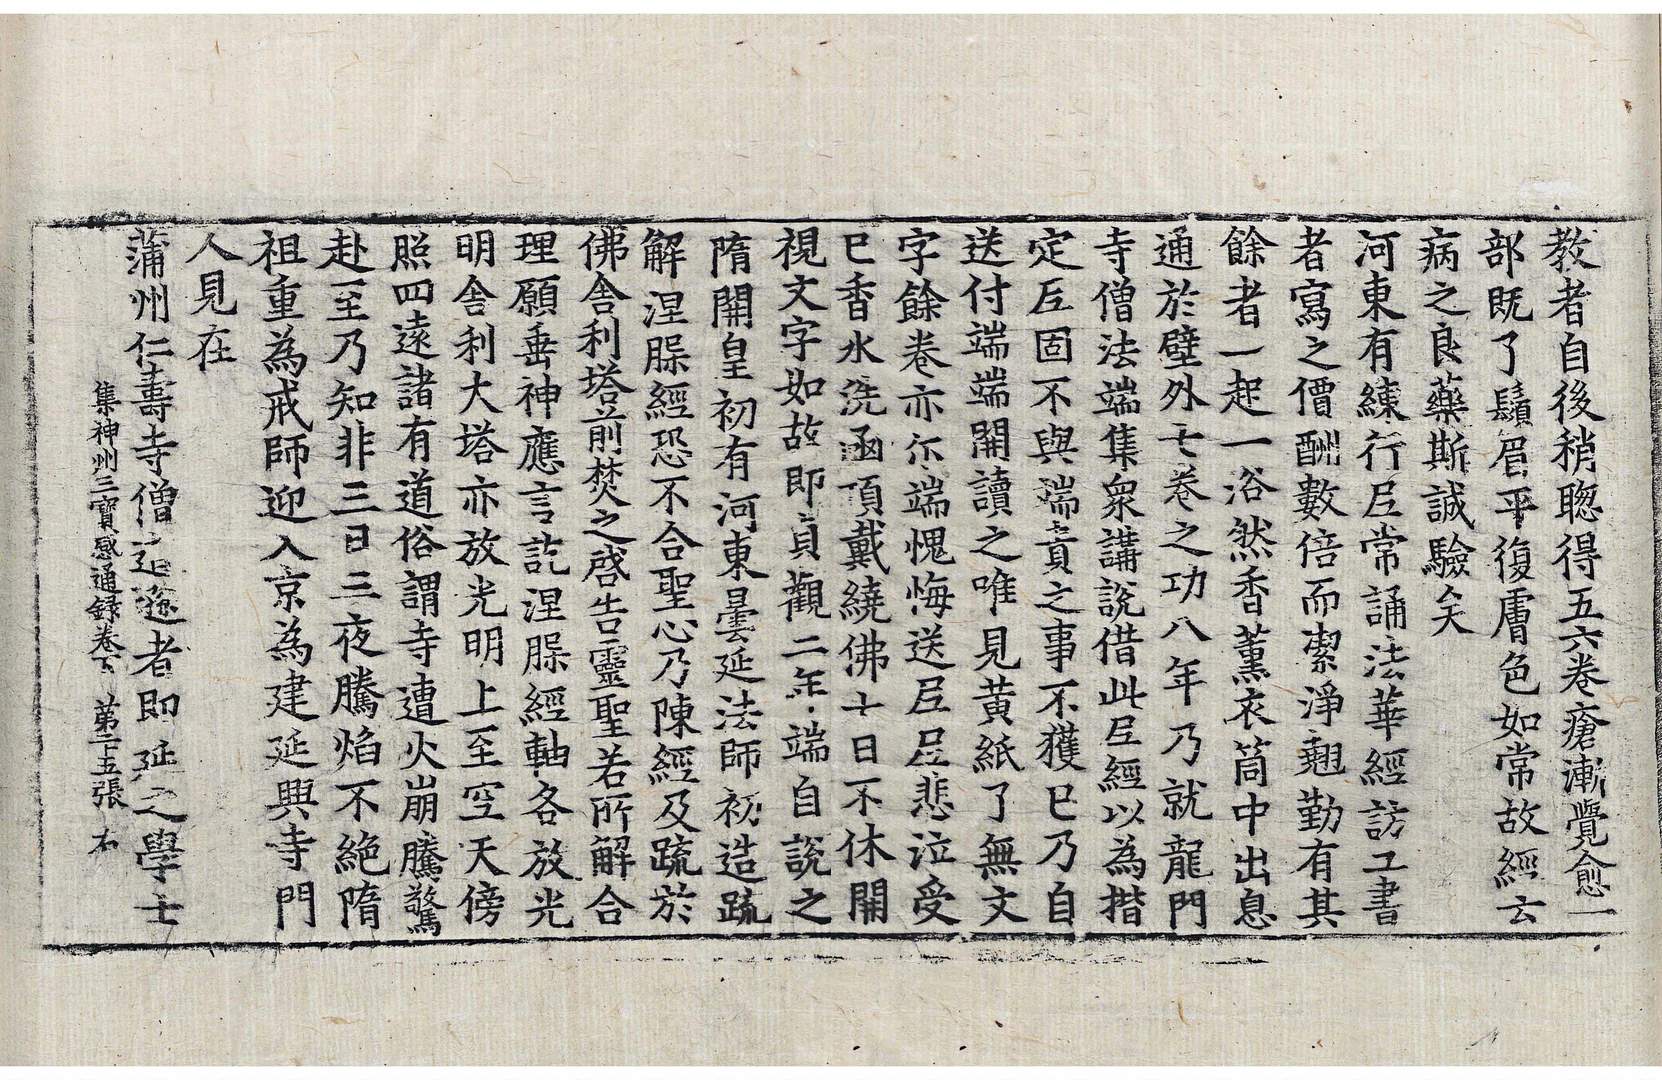 教者自後稍聦得五六卷瘡漸覺愈一
部既了鬚眉平復膚色如常故經云
病之良藥斯誠驗矣
河東有練行尼常誦法華經訪工書
者寫之價酬數倍而潔淨翹勤有其
餘者一起一浴然香薰衣筒中出息
通於壁外七卷之功八年乃就龍門
寺僧法端集衆講說借此尼經以為揩
定尼固不與端責之事不獲已乃自
送付端端開讀之唯見黃紙了無文
字餘卷亦尓端愧悔送尼尼悲泣受
已香水洗函頂戴繞佛七日不休開
視文字如故即貞觀二年端自說之
隋開皇初有河東曇延法師初造疏
解涅槃經恐不合聖心乃陳經及疏於
佛舍利塔前焚之啓告靈聖若所解合
理願垂神應言訖涅槃經軸各放光
明舍利大塔亦放光明上至空天傍
照四遠諸有道俗謂寺遭火崩騰驚
赴至乃知非三日三夜騰焰不絕隋
祖重為戒師迎入京為建延興寺門
人見在
蒲州仁壽寺僧道遜者即延之學士
集神州三寶感通録卷下 第二十五張 右